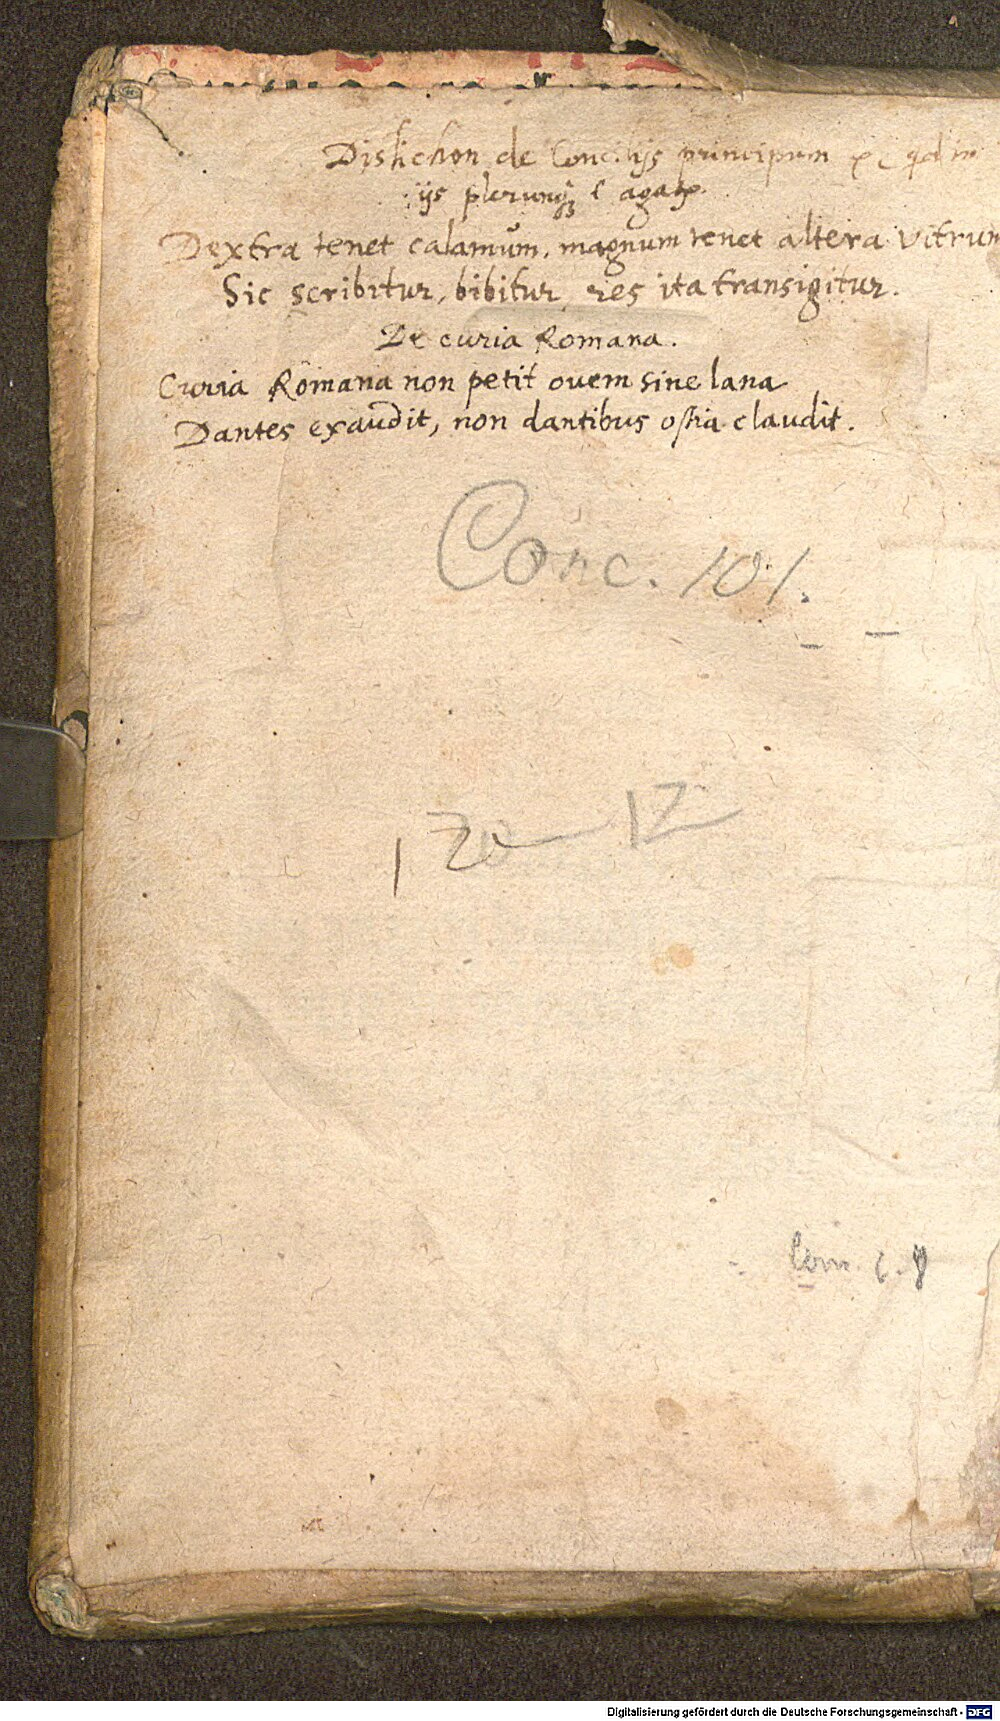 Distichon de Concilijs principum
ijs plerunq̃
Dextra tenet calamum, magnum tenet altera vitrum
Sic scribitur, bibitur res ita transigitur.
De curia Romana.
Curia Romana non petit ouem sine lana
Dantes exaudit, non dantibus ostia claudit.
Conc. 101.
Digitalisierung gefördert durch die Deutsche Forschungsgemeinschaft - DFG